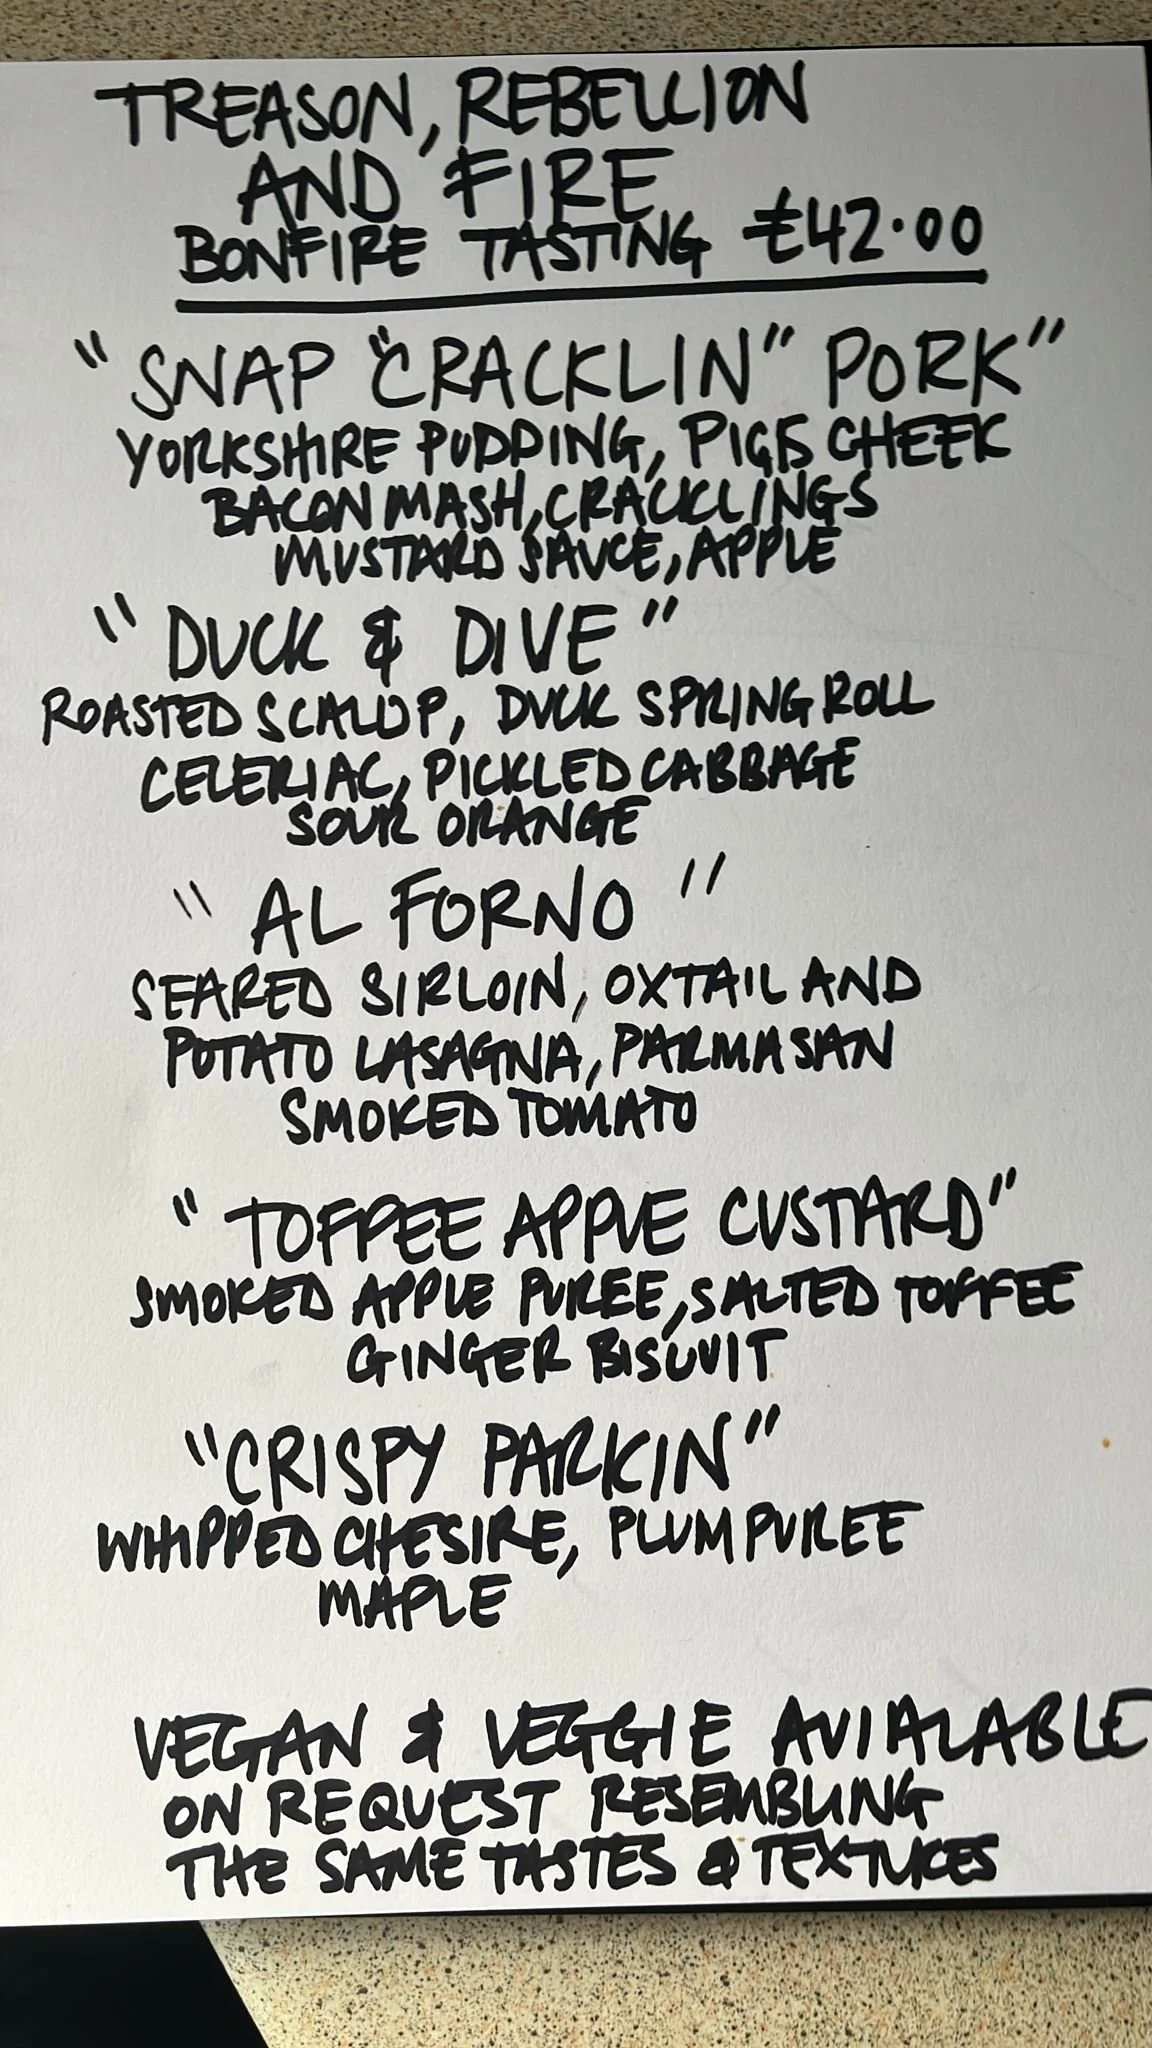 TREASON, REBELLION
AND FIRE
BONFIRE TASTING £42.00
"SNAP "CRACKLIN" PORK"
YORKSHIRE PUDDING, PIGS CHEEK
BACON MASH, CRACKLINGS
MUSTARD SAUCE, APPLE
"DUCK & DIVE"
ROASTED SCALLOP, DUCK SPRING ROLL
CELERIAC, PICKLED CABBAGE
SOUR ORANGE
"AL FORNO"
SEARED SIRLOIN, OXTAIL AND
POTATO LASAGNA, PARMASAN
SMOKED TOMATO
"TOFFEE APPLE CUSTARD"
SMOKED APPLE PUREE, SALTED TOFFEE
GINGER BISCUVIT
"CRISPY PARKIN"
WHIPPED CHESIRE, PLUM PUREE
MAPLE
VEGAN & VEGGIE AVIALABLE
ON REQUEST RESEMBLING
THE SAME TASTES & TEXTURES